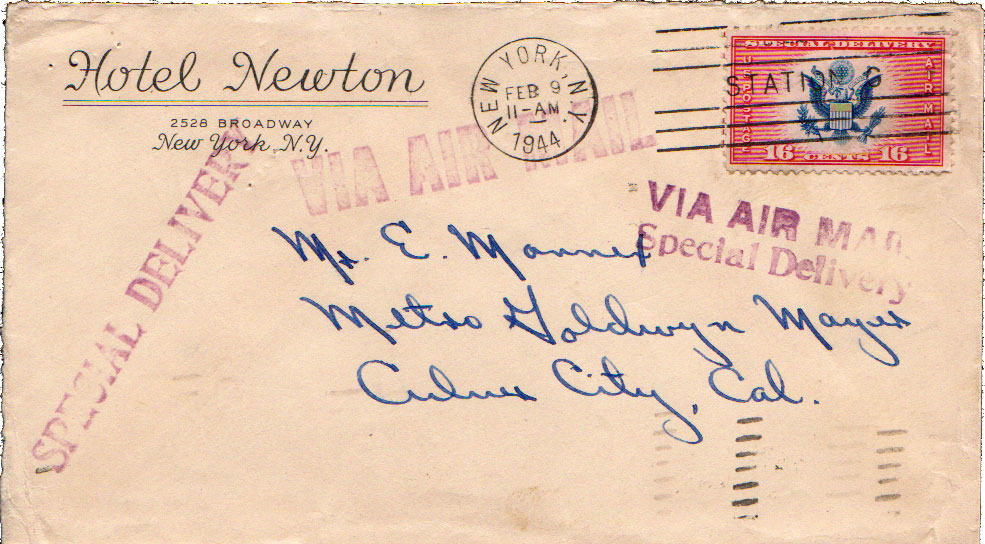 Hotel Newton
2528 BROADWAY
New York, N.Y.
NEW YORK, N.Y.
FEB 9
11-AM
1944
SPECIAL DELIVERY
U.S. POSTAGE
AIR MAIL
16 CENTS 16
STATION
VIA AIR MAIL
SPECIAL DELIVERY
VIA AIR MAIL
Special Delivery
Mr. E. Mannix
Metro Goldwyn Mayer
Culver City, Cal.